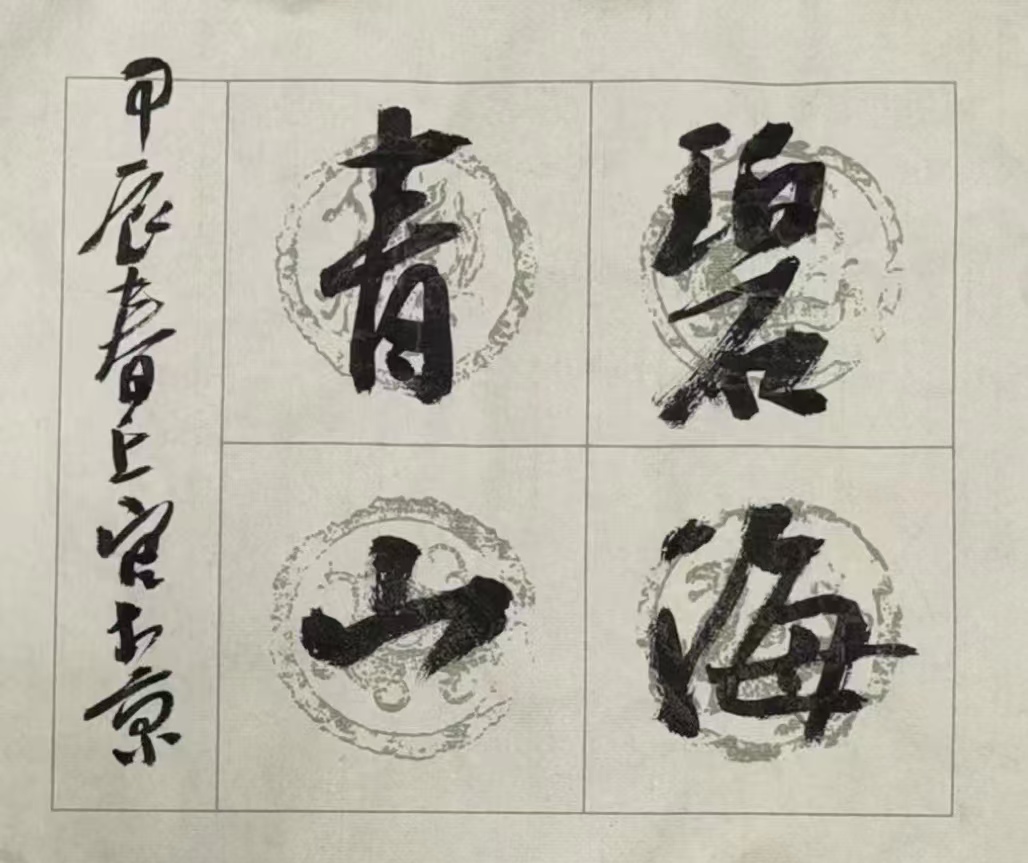 碧海
青山
甲辰春上官于京